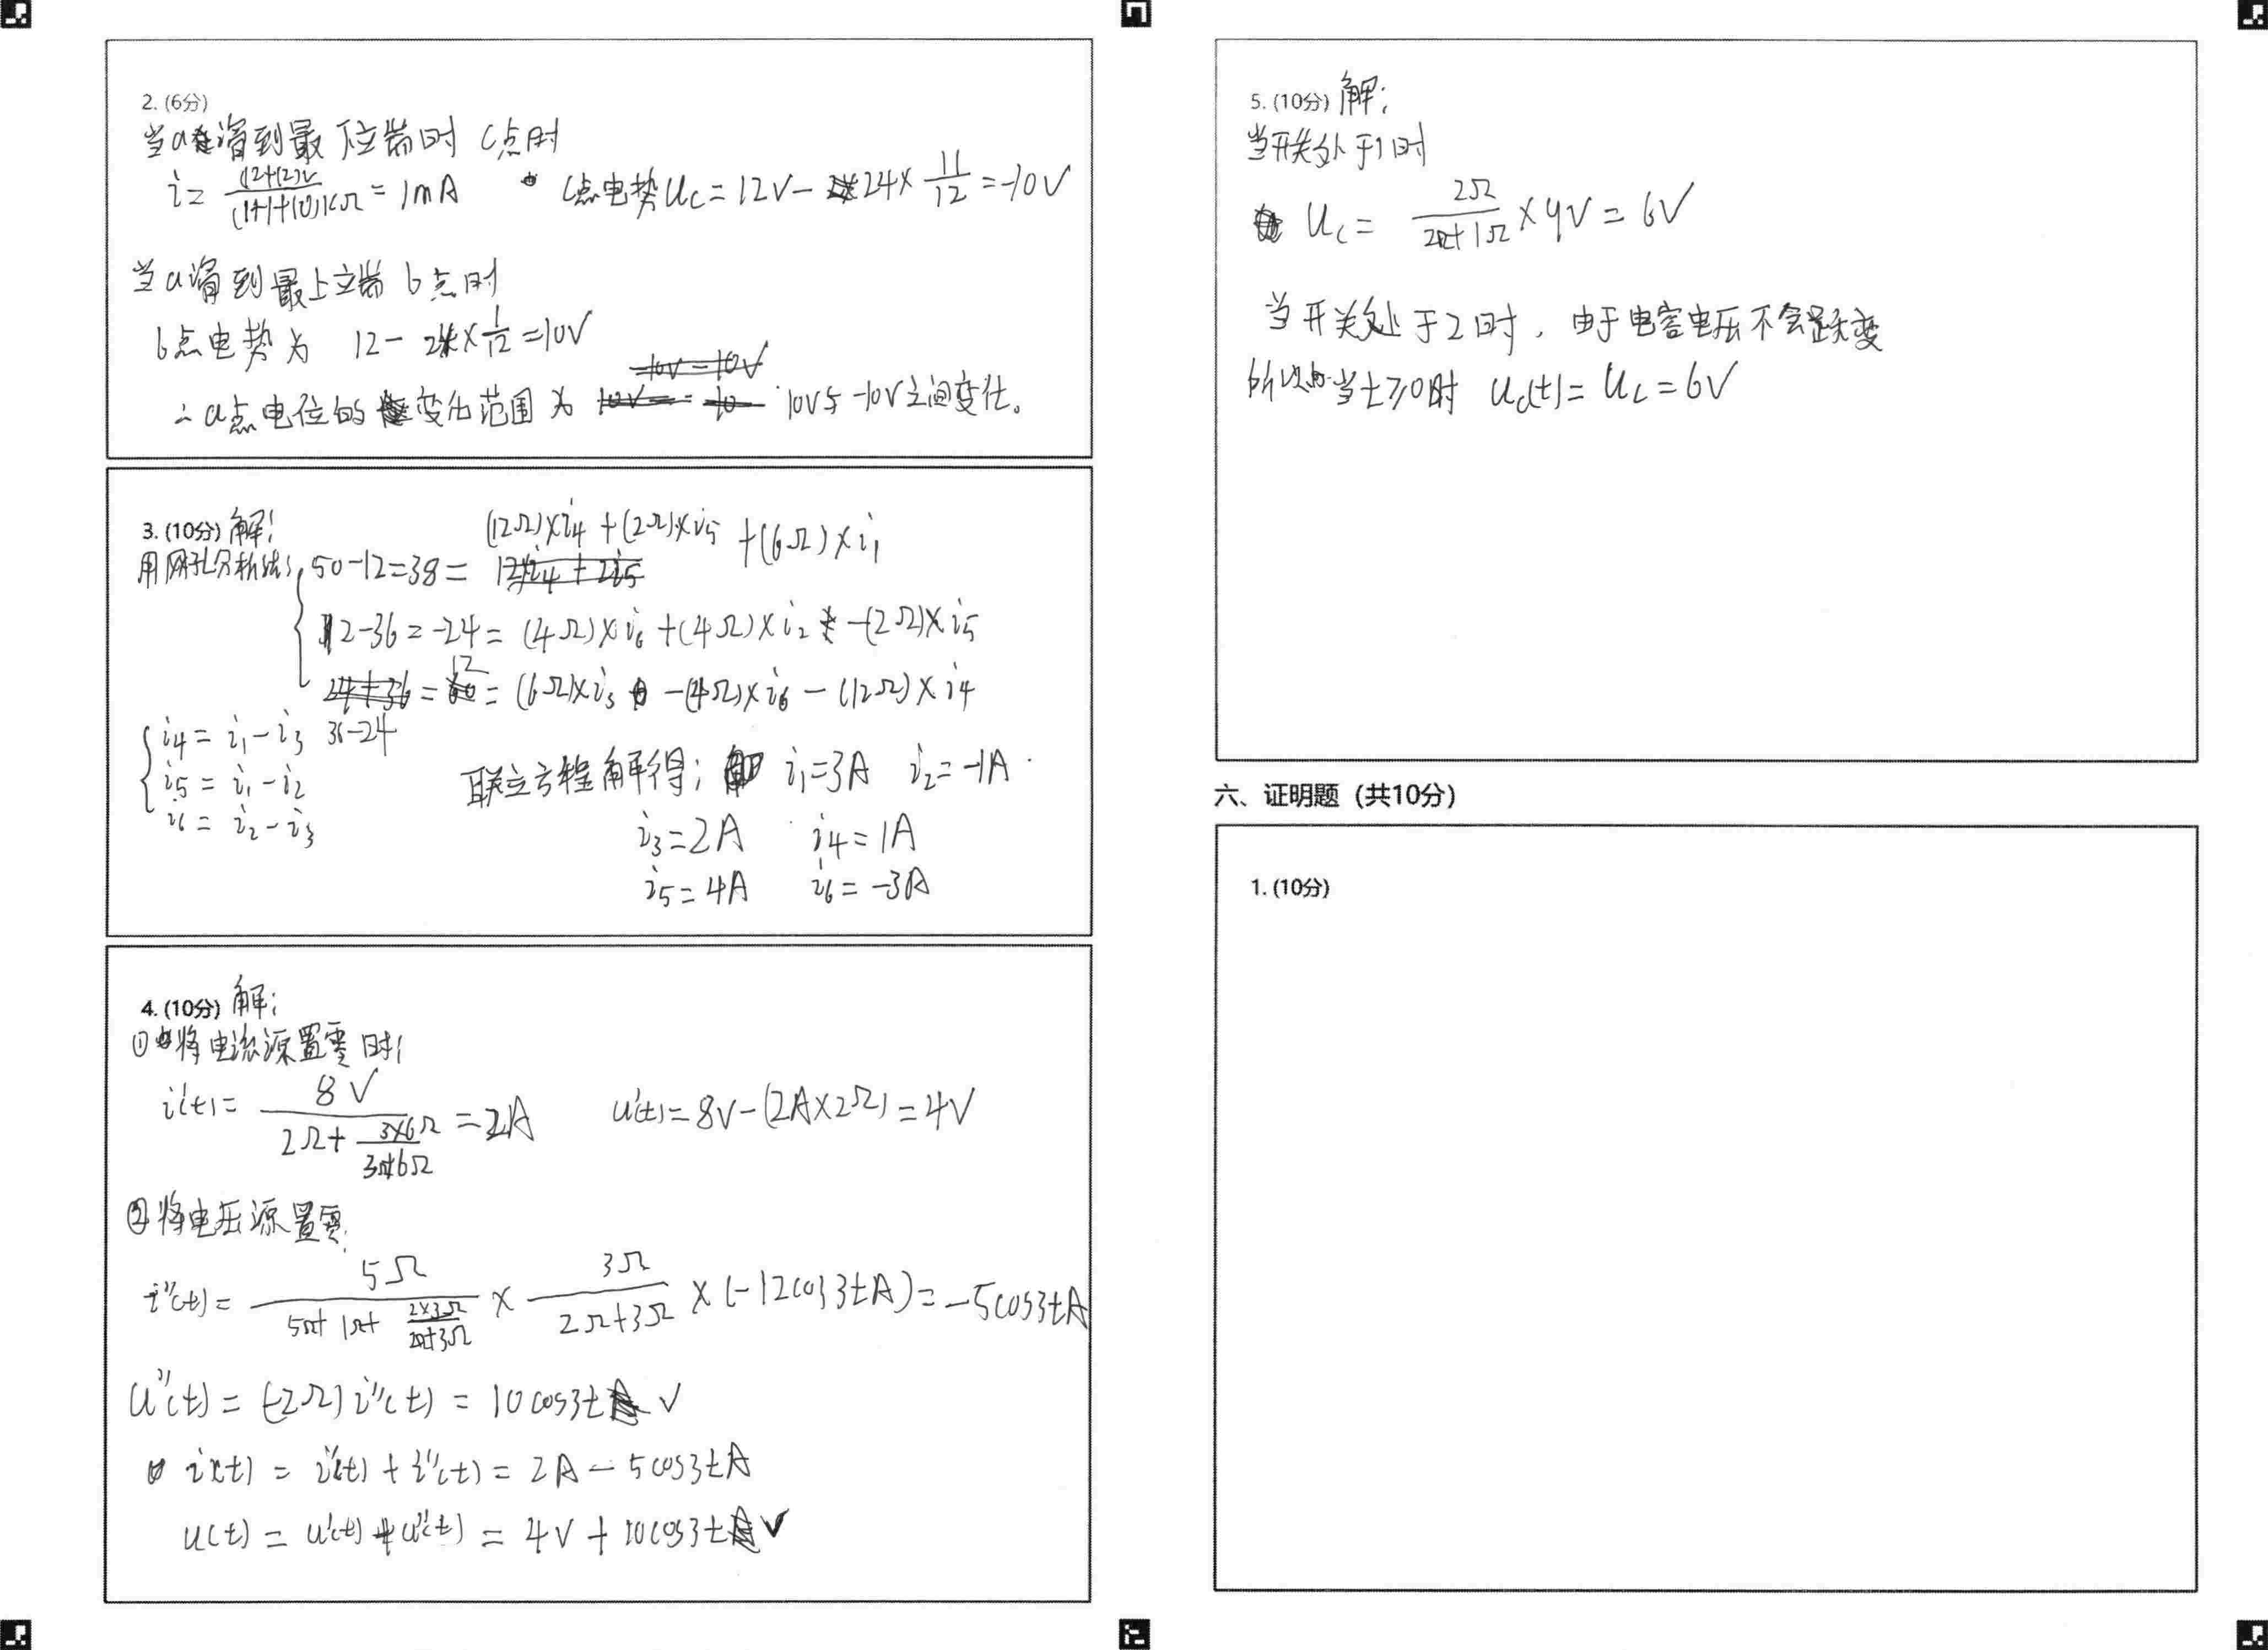 2. (6分)
当a滑到最下位端时 C点时
i = (12+12)V / (1+1+10)KΩ = 1mA C点电势Uc = 12V - 24 × 11/12 = -10V
当a滑到最上立端 b点时
b点电势为 12 - 24 × 1/12 = 10V
∴ a点电位的变化范围为 10V与 -10V之间变化。
3. (10分) 解:
用网孔分析法: 50-12=38= (12Ω)×i4 + (2Ω)×i5 + (6Ω)×i1
12-36 = -24 = (4Ω)×i6 + (4Ω)×i2 - (2Ω)×i5
36-24 = 12 = (6Ω)×i3 - (4Ω)×i6 - (12Ω)×i4
i4 = i1 - i3
i5 = i1 - i2
i6 = i2 - i3
联立方程解得: i1=3A i2=-1A
i3=2A i4=1A
i5=4A i6=-3A
4. (10分) 解:
①将电流源置零时:
i'(t) = 8V / (2Ω + 3×6Ω/3Ω+6Ω) = 2A u'(t) = 8V - (2A×2Ω) = 4V
②将电压源置零:
i''(t) = 5Ω / (5Ω + 1Ω + 2×3Ω/2Ω+3Ω) × 3Ω / (2Ω+3Ω) × (-12cos3tA) = -5cos3tA
u''(t) = (-2Ω) i''(t) = 10cos3t V
i(t) = i'(t) + i''(t) = 2A - 5cos3tA
u(t) = u'(t) + u''(t) = 4V + 10cos3t V
5. (10分) 解:
当开关处于1时
Uc = 2Ω / (2Ω+1Ω) × 9V = 6V
当开关处于2时, 由于电容电压不会跃变
所以当t≥0时 Uc(t) = Uc = 6V
六、证明题 (共10分)
1. (10分)